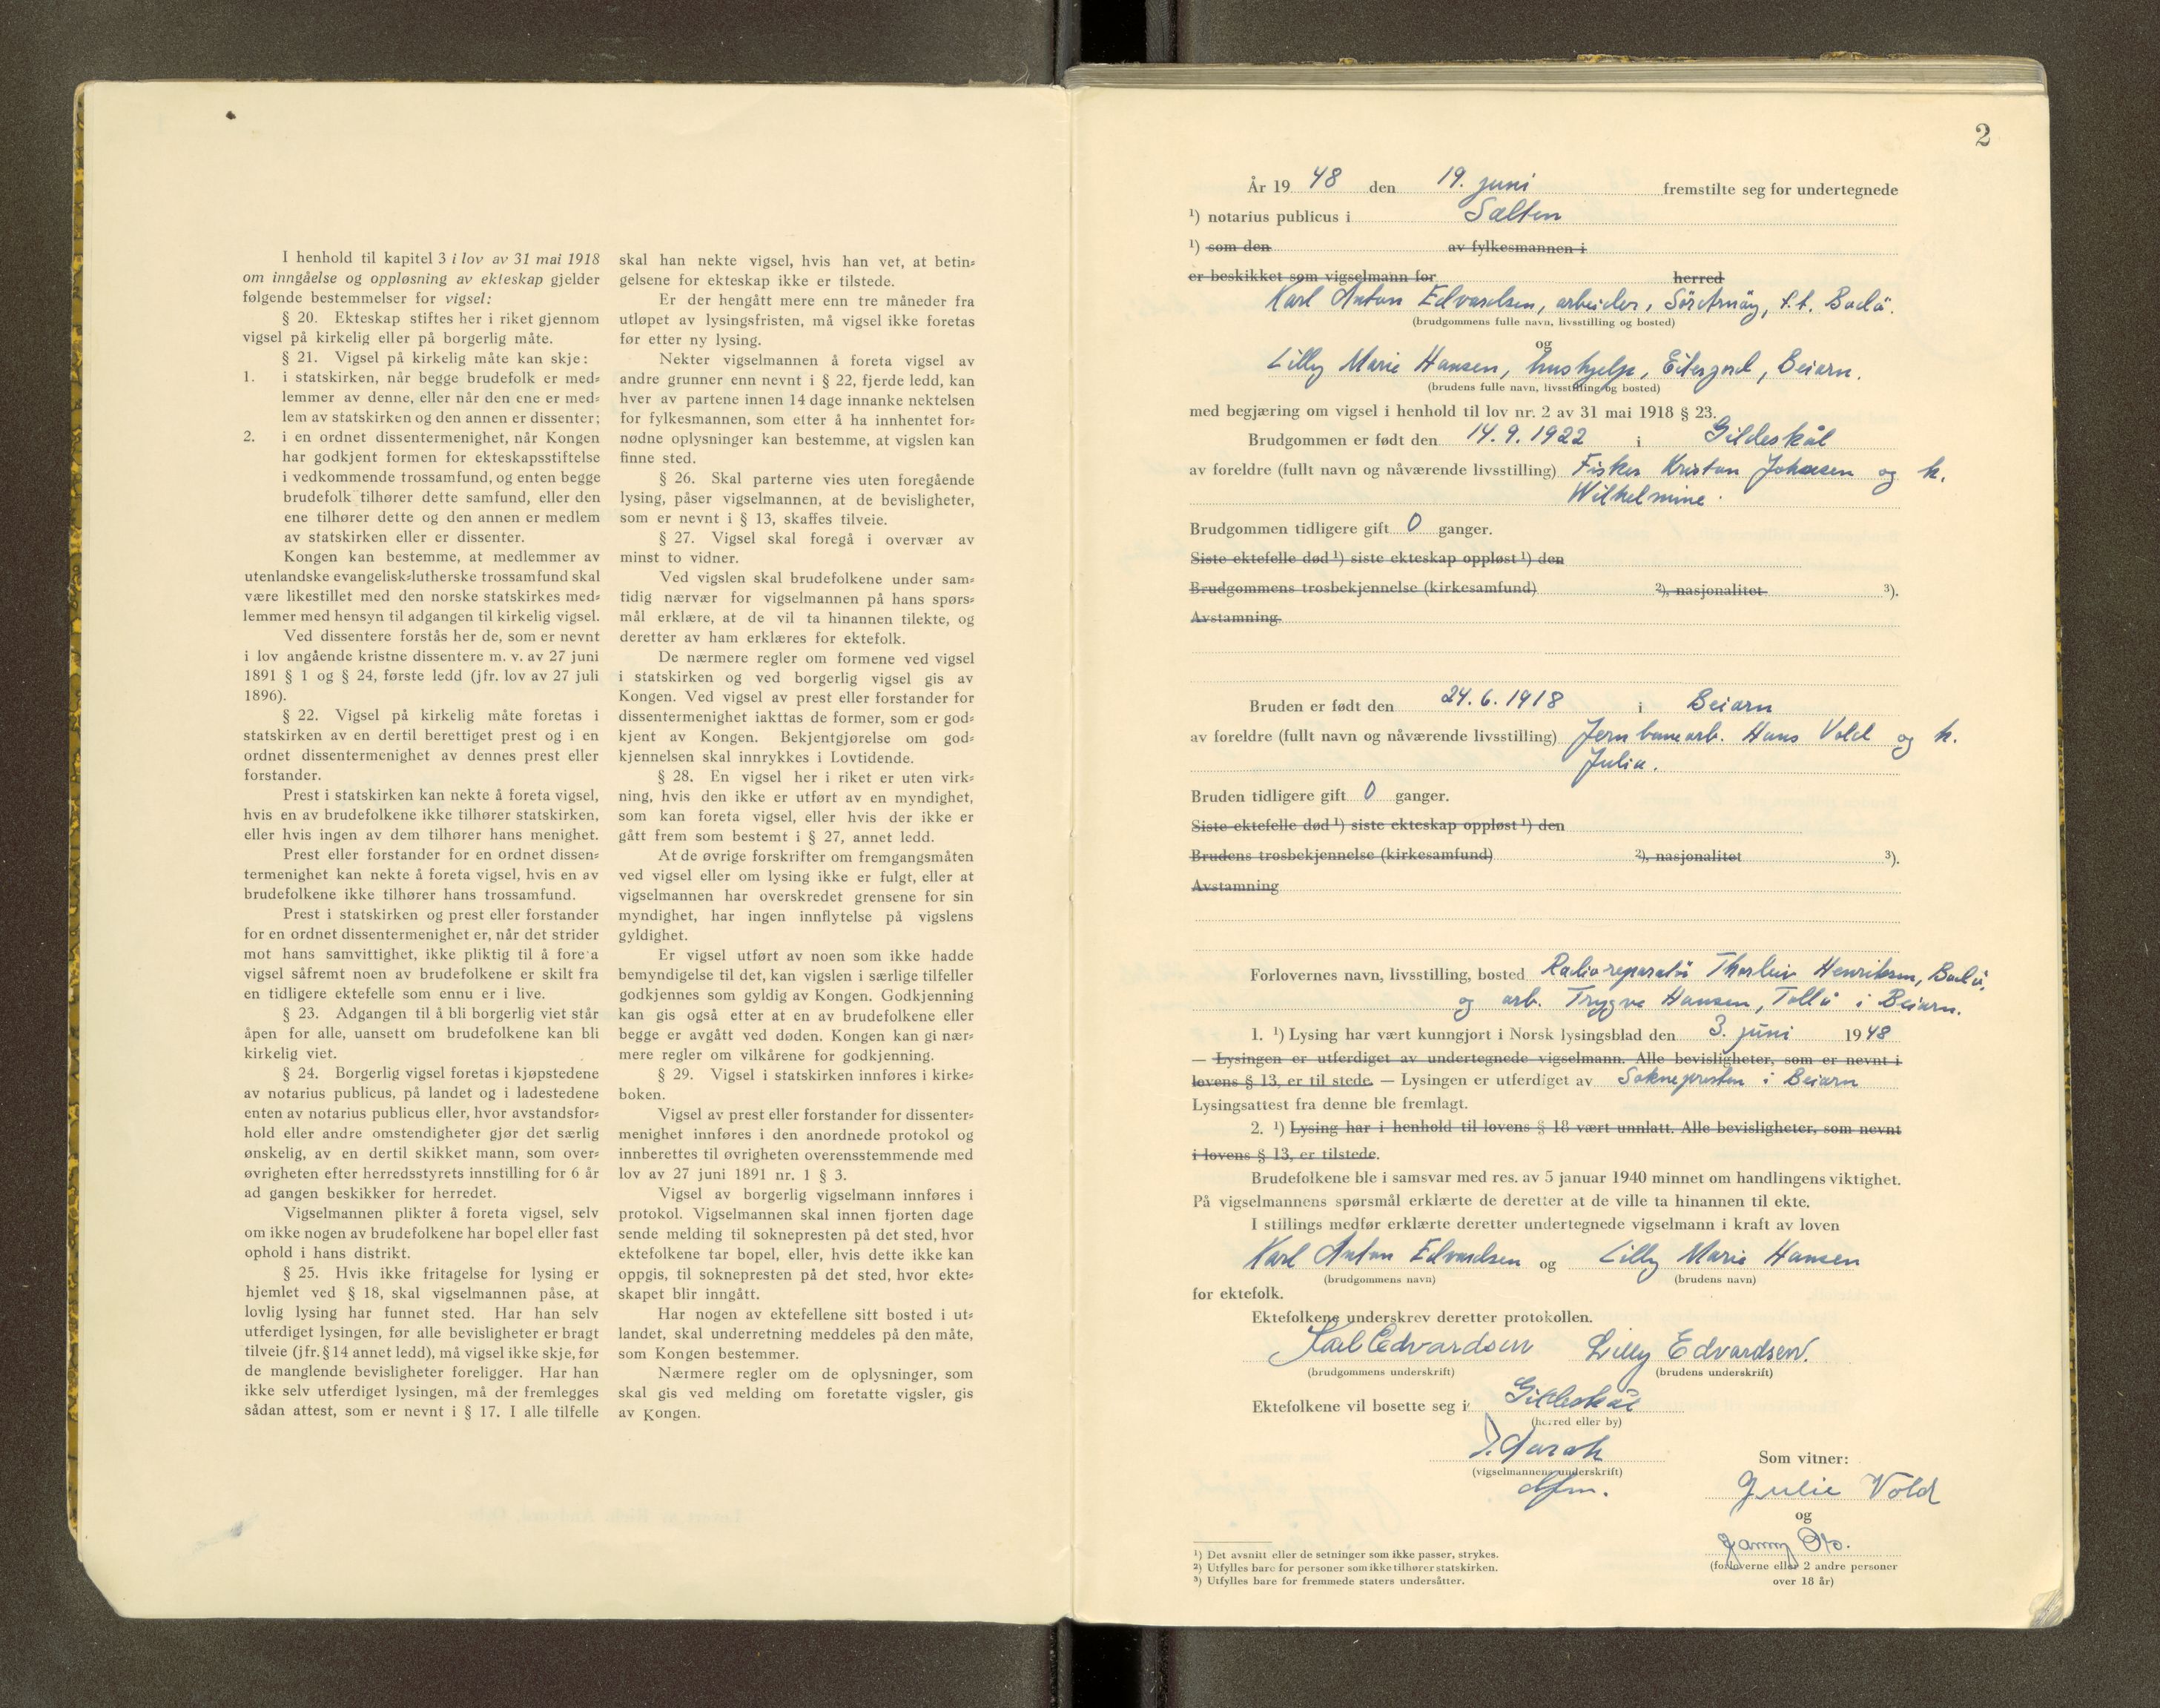 I henhold til kapitel 3 i lov av 31 mai 1918
om inngåelse og oppløsning av ekteskap gjelder
følgende bestemmelser for vigsel:
§ 20. Ekteskap stiftes her i riket gjennom
vigsel på kirkelig eller på borgerlig måte.
§ 21. Vigsel på kirkelig måte kan skje:
1. i statskirken, når begge brudefolk er med-
lemmer av denne, eller når den ene er med-
lem av statskirken og den annen er dissenter;
2. i en ordnet dissentermenighet, når Kongen
har godkjent formen for ekteskapsstiftelse
i vedkommende trossamfund, og enten begge
brudefolk tilhører dette samfund, eller den
ene tilhører dette og den annen er medlem
av statskirken eller er dissenter.
Kongen kan bestemme, at medlemmer av
utenlandske evangelisk-lutherske trossamfund skal
være likestillet med den norske statskirkes med-
lemmer med hensyn til adgangen til kirkelig vigsel.
Ved dissentere forstås her de, som er nevnt
i lov angående kristne dissentere m. v. av 27 juni
1891 § 1 og § 24, første ledd (jfr. lov av 27 juli
1896).
§ 22. Vigsel på kirkelig måte foretas i
statskirken av en dertil berettiget prest og i en
ordnet dissentermenighet av dennes prest eller
forstander.
Prest i statskirken kan nekte å foreta vigsel,
hvis en av brudefolkene ikke tilhører statskirken,
eller hvis ingen av dem tilhører hans menighet.
Prest eller forstander for en ordnet dissen-
termenighet kan nekte å foreta vigsel, hvis en av
brudefolkene ikke tilhører hans trossamfund.
Prest i statskirken og prest eller forstander
for en ordnet dissentermenighet er, når det strider
mot hans samvittighet, ikke pliktig til å fore a
vigsel såfremt noen av brudefolkene er skilt fra
en tidligere ektefelle som ennu er i live.
§ 23. Adgangen til å bli borgerlig viet står
åpen for alle, uansett om brudefolkene kan bli
kirkelig viet.
§ 24. Borgerlig vigsel foretas i kjøpstedene
av notarius publicus, på landet og i ladestedene
enten av notarius publicus eller, hvor avstandsfor-
hold eller andre omstendigheter gjør det særlig
ønskelig, av en dertil skikket mann, som over-
øvrigheten efter herredsstyrets innstilling for 6 år
ad gangen beskikker for herredet.
Vigselmannen plikter å foreta vigsel, selv
om ikke nogen av brudefolkene har bopel eller fast
ophold i hans distrikt.
§ 25. Hvis ikke fritagelse for lysing er
hjemlet ved § 18, skal vigselmannen påse, at
lovlig lysing har funnet sted. Har han selv
utferdiget lysingen, før alle bevisligheter er bragt
tilveie (jfr. § 14 annet ledd), må vigsel ikke skje, før
de manglende bevisligheter foreligger. Har han
ikke selv utferdiget lysingen, må der fremlegges
sådan attest, som er nevnt i § 17. I alle tilfelle
skal han nekte vigsel, hvis han vet, at betin-
gelsene for ekteskap ikke er tilstede.
Er der hengått mere enn tre måneder fra
utløpet av lysingsfristen, må vigsel ikke foretas
før etter ny lysing.
Nekter vigselmannen å foreta vigsel av
andre grunner enn nevnt i § 22, fjerde ledd, kan
hver av partene innen 14 dage innanke nektelsen
for fylkesmannen, som etter å ha innhentet for-
nødne oplysninger kan bestemme, at vigslen kan
finne sted.
§ 26. Skal parterne vies uten foregående
lysing, påser vigselmannen, at de bevisligheter,
som er nevnt i § 13, skaffes tilveie.
§ 27. Vigsel skal foregå i overvær av
minst to vidner.
Ved vigslen skal brudefolkene under sam-
tidig nærvær for vigselmannen på hans spørs-
mål erklære, at de vil ta hinannen tilekte, og
deretter av ham erklæres for ektefolk.
De nærmere regler om formene ved vigsel
i statskirken og ved borgerlig vigsel gis av
Kongen. Ved vigsel av prest eller forstander for
dissentermenighet iakttas de former, som er god-
kjent av Kongen. Bekjentgjørelse om god-
kjennelsen skal innrykkes i Lovtidende.
§ 28. En vigsel her i riket er uten virk-
ning, hvis den ikke er utført av en myndighet,
som kan foreta vigsel, eller hvis der ikke er
gått frem som bestemt i § 27, annet ledd.
At de øvrige forskrifter om fremgangsmåten
ved vigsel eller om lysing ikke er fulgt, eller at
vigselmannen har overskredet grensene for sin
myndighet, har ingen innflytelse på vigslens
gyldighet.
Er vigsel utført av noen som ikke hadde
bemyndigelse til det, kan vigslen i særlige tilfeller
godkjennes som gyldig av Kongen. Godkjenning
kan gis også etter at en av brudefolkene eller
begge er avgått ved døden. Kongen kan gi nær-
mere regler om vilkårene for godkjenning.
§ 29. Vigsel i statskirken innføres i kirke-
boken.
Vigsel av prest eller forstander for dissenter-
menighet innføres i den anordnede protokol og
innberettes til øvrigheten overensstemmende med
lov av 27 juni 1891 nr. 1 § 3.
Vigsel av borgerlig vigselmann innføres i
protokol. Vigselmannen skal innen fjorten dage
sende melding til soknepresten på det sted, hvor
ektefolkene tar bopel, eller, hvis dette ikke kan
oppgis, til soknepresten på det sted, hvor ekte-
skapet blir inngått.
Har nogen av ektefellene sitt bosted i ut-
landet, skal underretning meddeles på den måte,
som Kongen bestemmer.
Nærmere regler om de oplysninger, som
skal gis ved melding om foretatte vigsler, gis
av Kongen.
2
År 19 48 den 19. juni fremstilte seg for undertegnede
1) notarius publicus i Salten
1) som den av fylkesmannen i
er beskikket som vigselmann for herred
Karl Anton Edvardsen, arbeider, Sørarnøy, f.t. Bodø.
(brudgommens fulle navn, livsstilling og bosted)
og
Lilly Marie Hansen, hushjelp, Eiterjord, Beiarn.
(brudens fulle navn, livsstilling og bosted)
med begjæring om vigsel i henhold til lov nr. 2 av 31 mai 1918 § 23.
Brudgommen er født den 14.9.1922 i Gildeskål
av foreldre (fullt navn og nåværende livsstilling) Fisker Kristian Johansen og h.
Wilhelmine.
Brudgommen tidligere gift 0 ganger.
Siste ektefelle død 1) siste ekteskap oppløst 1) den
Brudgommens trosbekjennelse (kirkesamfund) 2), nasjonalitet 3).
Avstamning
Bruden er født den 24.6.1918 i Beiarn
av foreldre (fullt navn og nåværende livsstilling) Jernbanearb. Hans Vold og h.
Julia.
Bruden tidligere gift 0 ganger.
Siste ektefelle død 1) siste ekteskap oppløst 1) den
Brudens trosbekjennelse (kirkesamfund) 2), nasjonalitet 3).
Avstamning
Forlovernes navn, livsstilling, bosted Radioreparatør Thorleiv Henriksen, Bodø,
og arb. Trygve Hansen, Tollå i Beiarn.
1. 1) Lysing har vært kunngjort i Norsk lysingsblad den 3. juni 1948
— Lysingen er utferdiget av undertegnede vigselmann. Alle bevisligheter, som er nevnt i
lovens § 13, er til stede. — Lysingen er utferdiget av Soknepresten i Beiarn
Lysingsattest fra denne ble fremlagt.
2. 1) Lysing har i henhold til lovens § 18 vært unnlatt. Alle bevisligheter, som nevnt
i lovens § 13, er tilstede.
Brudefolkene ble i samsvar med res. av 5 januar 1940 minnet om handlingens viktighet.
På vigselmannens spørsmål erklærte de deretter at de ville ta hinannen til ekte.
I stillings medfør erklærte deretter undertegnede vigselmann i kraft av loven
Karl Anton Edvardsen og Lilly Marie Hansen
(brudgommens navn) (brudens navn)
for ektefolk.
Ektefolkene underskrev deretter protokollen.
Karl Edvardsen Lilly Edvardsen.
(brudgommens underskrift) (brudens underskrift)
Ektefolkene vil bosette seg i Gildeskål
(herred eller by)
(vigselmannens underskrift)
Som vitner:
Julie Vold
og
(forloverne eller 2 andre personer
over 18 år)
1) Det avsnitt eller de setninger som ikke passer, strykes.
2) Utfylles bare for personer som ikke tilhører statskirken.
3) Utfylles bare for fremmede staters undersåtter.